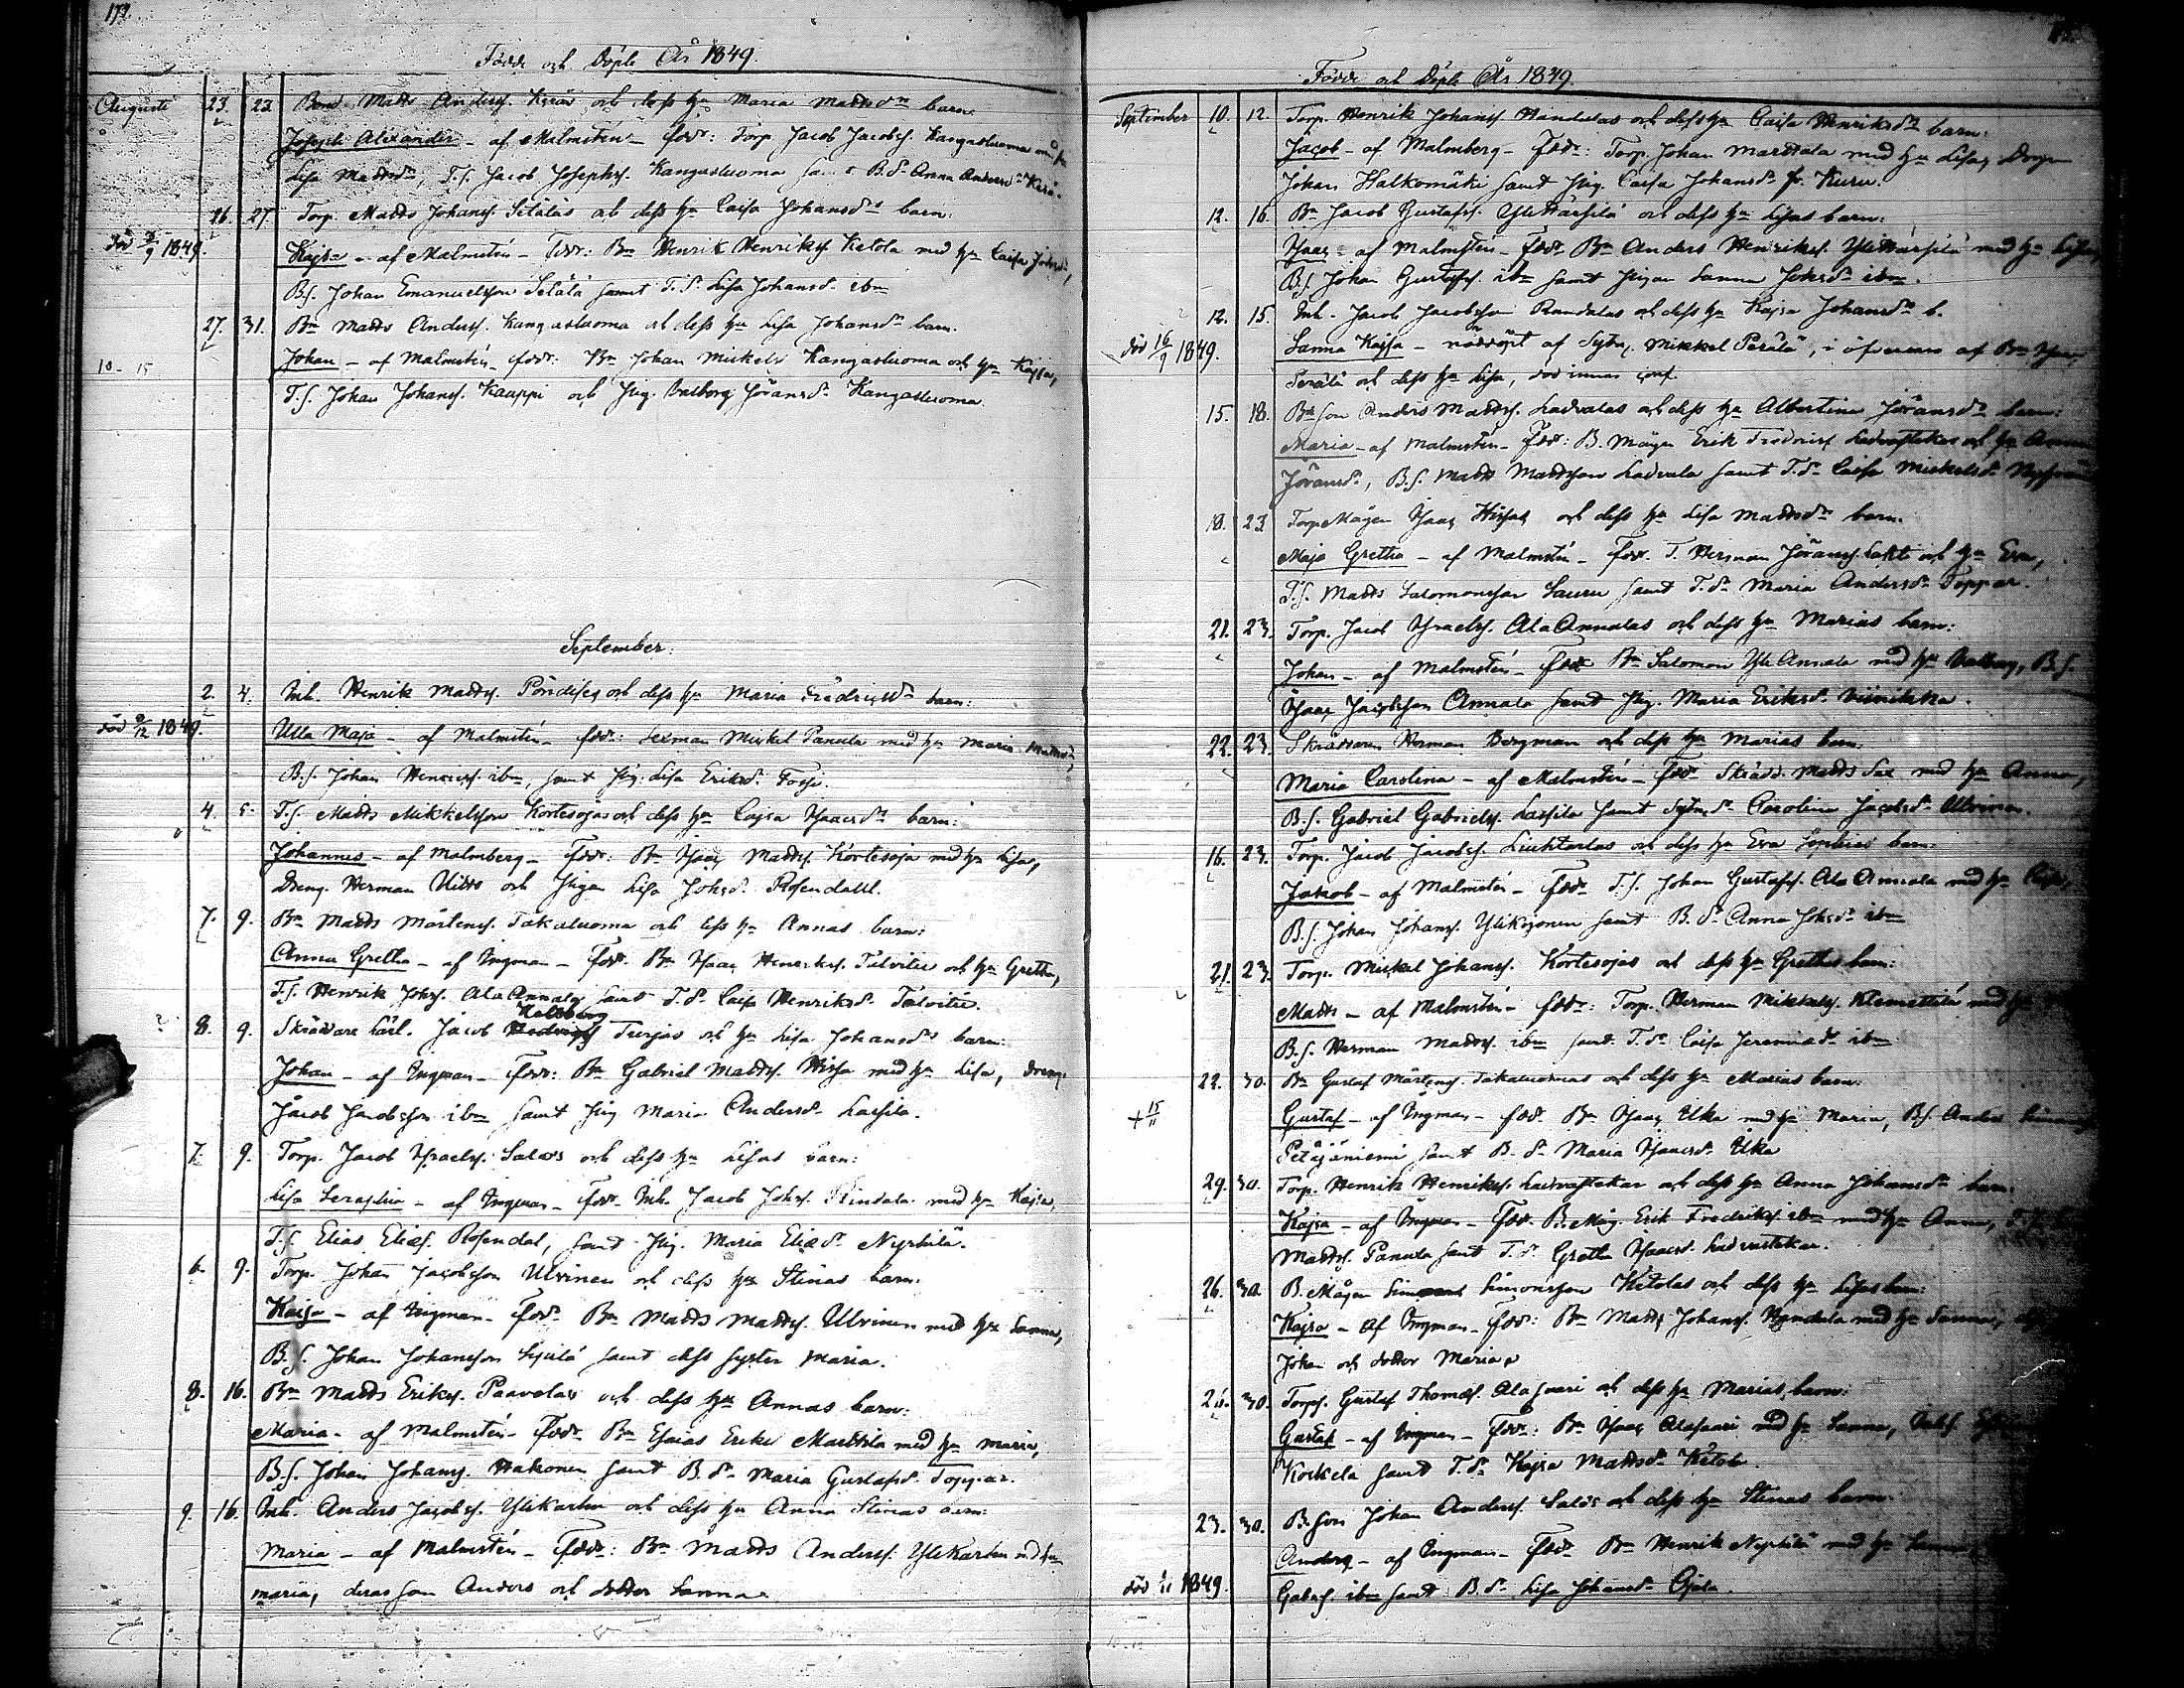 172.
Födde och Döpte År 1849.
Augusti 23. 23. Bond. Matts Anderss. Keräs och dess hu Maria Mattsdrs barn
Joseph Alexander - af Malmstén - fdr: Torp. Jacob Jacobss. Kangasluoma
Lisa Mattsdr, T.S. Jacob Josephss. Kangasluoma samt B.dr Anna Andersdr Kerä.
26. 27. Torp. Matts Johanss. Setäläs och dess hu Caisa Johansdrs barn:
död 9/9 1849. Kajsa - af Malmstén - fdr: Bn Henrik Henrikss. Ketola med hu Caisa Johsdr,
B.S. Johan Emanuelsson Setälä samt T.dr Lisa Johansdr ibm
27. 31. Bn Matts Anderss. Kangasluoma och dess hu Lisa Johansdrs barn.
10 - 15 Johan - af Malmstén - fdr: Bn Johan Mickels Kangasluoma och hu Kajsa,
T.S. Johan Johanss. Kauppi och Pig. Valborg Jöransdr Kangasluoma.
September.
2. 4. Inh. Henrik Mattss. och dess hu Maria Fredriksdrs barn:
död 9/12 1849. Ulla Maja - af Malmstén - fdr: Sexman Mickel Panula med hu Maria
B.S. Johan Henrikss. ibm, samt Pig. Lisa Eriksdr
4. 5. T.S. Matts Mikkelsson Kortesojas och dess hu Cajsa Isaacsdrs barn:
Johannes - af Malmberg - fdr: Bn Isaac Mattss. Kortesoja med hu Lisa,
Dreng. Herman och Pigan Lisa Johsdr Rosendahl.
7. 9. Bn Matts Mårtenss. Takaluoma och dess hu Annas barn:
Anna Gretha - af Ingman - fdr. Bn Isaac Henrikss. Talvitie och hu Gretha,
T.S. Henrik Johss. AlaAnnala samt T.dr Caisa Henriksdr Talvitie.
8. 9. Skräddare Lärl. Jacob Turjas och hu Lisa Johansdrs barn:
Johan - af Ingman - fdr: Bn Gabriel Mattss. Hissa med hu Lisa, Dreng.
Jacob Jacobsson ibm samt Pig Maria Andersdr Lassila.
7. 9. Torp. Jacob Israelss. Salos och dess hu Lisas barn:
Lisa Seraphia - af Ingman - fdr. Inh. Jacob Johss. Rindala med hu Kajsa,
T.S. Elias Eliass. Rosendal, samt Pig. Maria Eliædr Nyrhilä.
6. 9. Torp. Johan Jacobsson Ulvinen och dess hu Stinas barn:
Kaisa - af Ingman - fdr. Bn Matts Mattss. Ulvinen med hu Sanna,
B.S. Johan Johansson samt dess syster Maria.
8. 16. Bn Matts Erikss. Paavolas och dess hu Annas barn:
Maria - af Malmstén - fdr. Bn Esaias Eriks Marttila med hu Maria,
B.S. Johan Johanss. Hakonen samt B.dr Maria Gustafsdr Toppar.
9. 16. Inh. Anders Jacobss. YliKarhu och dess hu Anna Stinas barn:
Maria - af Malmstén - fdr: Bn Matts Anderss. YliKarhu med hu
Maria, deras son Anders och dotter Sanna.
Födde och Döpte År 1849.
September 10. 12. Torp. Henrik Johanss. Handulas och dess hu Caisa Henriksdrs barn:
Jacob - af Malmberg - fdr: Torp. Johan Marttala med hu Lisa, Dreng
Johan Halkomäki samt Pig. Caisa Johansdr fr. Kuru.
12. 16. Bn Jacob Gustafss. YliHärsilä och dess hu Lisas barn:
Isaac - af Malmstén - fdr. Bn Anders Henrikss. YliHärsilä med hu Lisa,
B.S. Johan Gustafss. ibm samt Pigan Sanna Johsdr ibm.
12. 15. Inh. Jacob Jacobsson Randalas och dess hu Kajsa Johansdrs b.
död 16/9 1849. Sanna Kajsa - nöddöpt af Sytn. Mikkel Perälä, i öfvervaro af Bn
Perälä och dess hu Lisa, död innan conf.
15. 18. B.Son Anders Mattss. Ladvalas och dess hu Albertina Jöransdrs barn:
Maria - af Malmstén - fdr: B.Mågen Erik Fredrikss. Ladvastakas och hu Anna
Jöransdr, B.S. Matts Mattsson Ladvala samt T.dr Caisa Mickelsdr
18. 23. Torp.Mågen Isaac Hissas och dess hu Lisa Mattsdrs barn.
Maja Gretha - af Malmstén - fdr. T. Herman Jöranss. Lahti och hu Eva,
T.S. Matts Salomonsson Sauru samt T.dr Maria Andersdr Toppar.
21. 23. Torp. Jacob Israelss. AlaAnnalas och dess hu Marias barn:
Johan - af Malmstén - fdr Bn Salomon YliAnnala med hu Valborg, B.S.
Isaac Jacobsson Annala samt Pig. Maria Eriksdr Viinikka.
22. 23. Skräddaren Herman Bergman och dess hu Marias barn:
Maria Carolina - af Malmstén - fdr. Skrädd. Matts Sax med hu Anna,
B.S. Gabriel Gabrielss. Lassila samt Sytn.dr Carolina Jacobsdr Ulvinen.
16. 23. Torp. Jacob Jacobss. Liuhtarlas och dess hu Eva Sophias barn:
Jakob - af Malmstén - fdr. T.S. Johan Gustafss. AlaAnnala med hu Caisa,
B.S. Johan Johanss. Ylikojonen samt B.dr Anna Johsdr ibm
21. 23. Torp. Mickel Johanss. Kortesojas och dess hu Grethas barn:
Matts - af Malmstén - fdr: Torp. Herman Mikkelss. Klemettilä med hu
B.S. Herman Mattss. ibm samt T.dr Caisa Jeremiædr ibm
22. 30. Bn Gustaf Mårtenss. Takaluomas och dess hu Marias barn:
+ 15/11 Gustaf - af Ingman - fdr. Bn Isaac Ulka med hu Maria, B.S. Anders
Petäjäniemi samt B.dr Maria Isaacsdr Ulka
29. 30. Torp. Henrik Henrikss. Ladvastakan och dess hu Anna Johansdrs barn:
Kajsa - af Ingman - fdr. B.Måg. Erik Fredrikss. ibm med hu Anna,
Mattss. Panula samt T.dr Gretha Isaacsdr Ladvastakan.
26. 30. B.Mågen Simonsson Ketolas och dess hu Lisas barn:
Kajsa - af Ingman - fdr: Bn Matts Johanss. Handula med hu Sanna,
Johan och dotter Maria
26. 30. Torp. Gustaf Thomass. AlaSaari och dess hu Marias barn:
Gustaf - af Ingman - fdr: Bn Isaac AlaSaari med hu Sanna,
Korkela samt T.dr Kajsa Mattsdr Ketola.
23. 30. B.Son Johan Anderss. Salos och dess hu Stinas barn:
Anders - af Ingman - fdr. Bn Henrik Nyrhilä med hu Sanna
död /11 1849. Gabrs. ibm samt B.dr Lisa Johansdr Ojala.